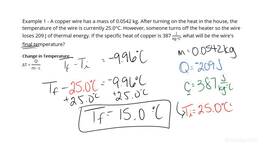 Example 1 - A copper wire has a mass of 0.0542 kg. After turning on the heat in the house, the
temperature of the wire is currently 25.0°C. However, someone turns off the heater so the wire
loses 209 J of thermal energy. If the specific heat of copper is 387 J/kg·°C what will be the wire's
final temperature?
Change in Temperature
ΔT = Q/m·c
Tf - Ti = -9.96°C
Tf - 25.0°C = -9.96°C
+25.0°C +25.0°C
Tf = 15.0 °C
m = 0.0542 kg
Q = -209 J
c = 387 J/kg·°C
Ti = 25.0°C